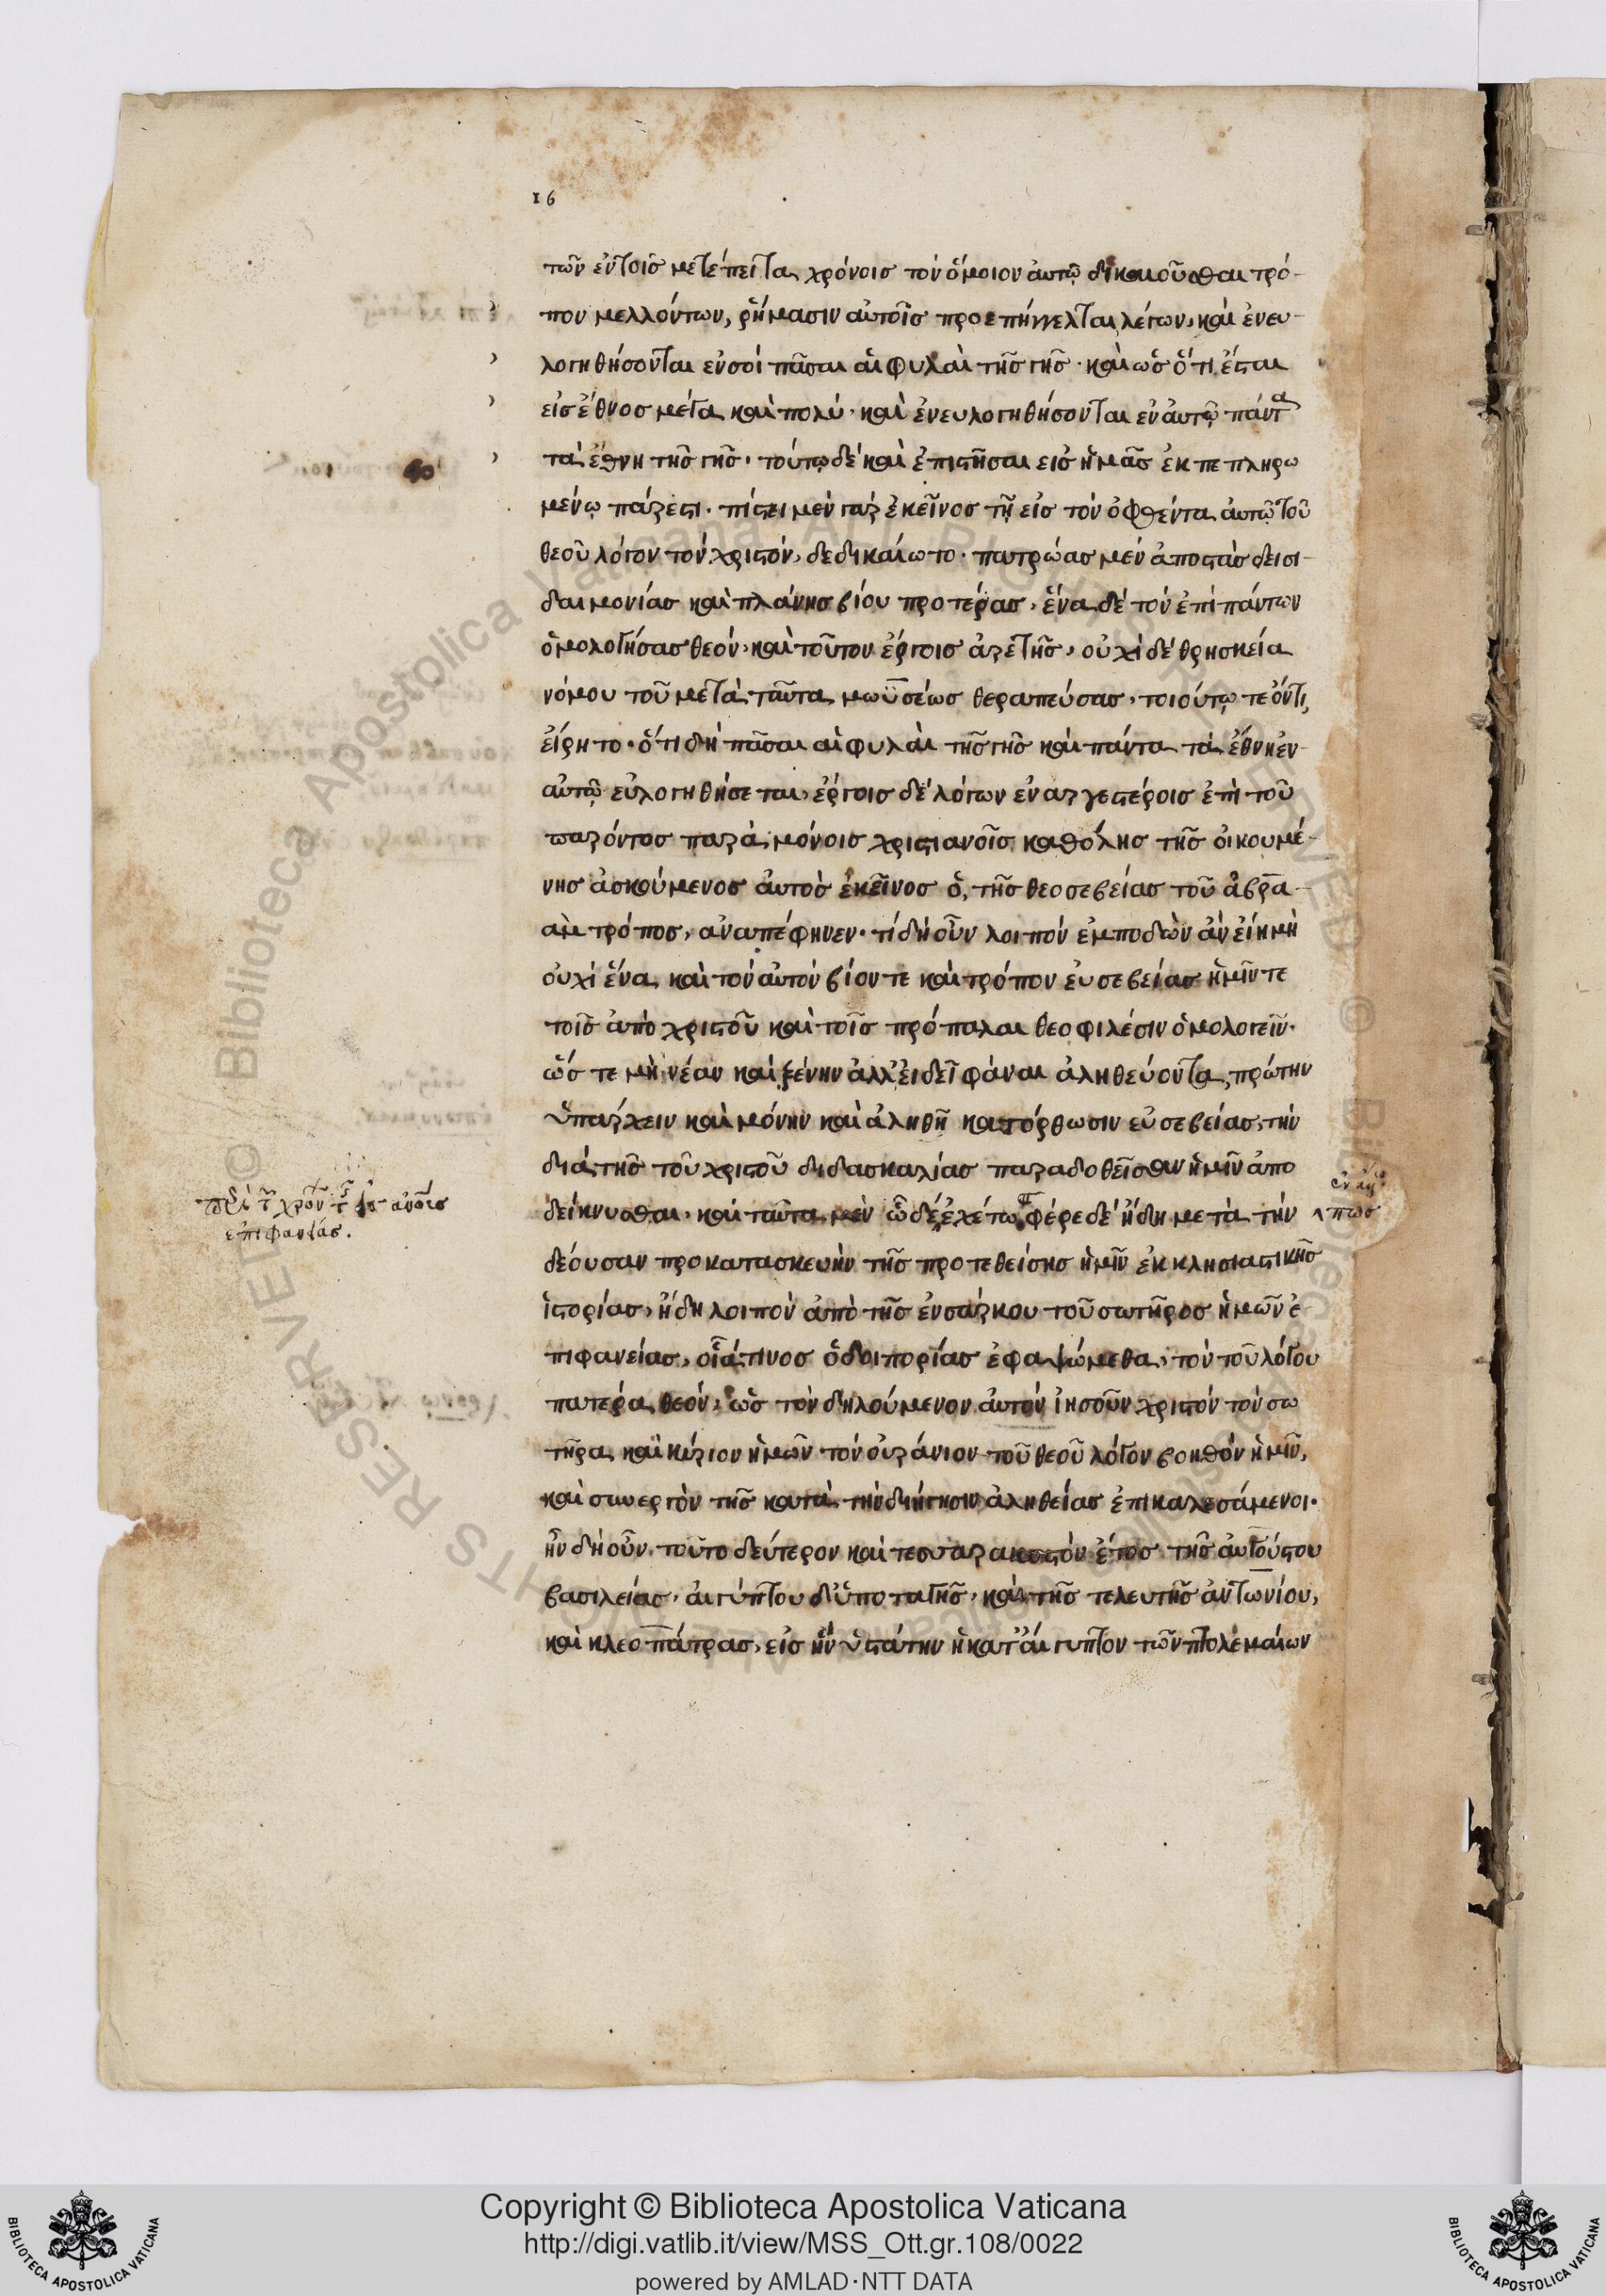 16
τῶν ἐν τοῖς μετέπειτα χρόνοις τὸν ὅμοιον αὐτῷ δικαιοῦσθαι τρό-
πον μελλόντων, ῥήμασιν αὐτοῖς προεπήγγελται λέγων, καὶ ἐνευ-
λογηθήσονται ἐν σοὶ πᾶσαι αἱ φυλαὶ τῆς γῆς· καὶ ὡς ὅτι ἔσται
εἰς ἔθνος μέγα καὶ πολύ· καὶ ἐνευλογηθήσονται ἐν αὐτῷ πάντα
τὰ ἔθνη τῆς γῆς· τούτῳ δὲ καὶ ἐπιστῆσαι εἰς ἡμᾶς ἐκπεπληρω
μένῳ πάρεστι· πίστει μὲν γὰρ ἐκεῖνος τῇ εἰς τὸν ὀφθέντα αὐτῷ τοῦ
θεοῦ λόγον τὸν χριστόν, δεδικαίωτο· πατρώας μὲν ἀποστὰς δεισι-
δαιμονίας καὶ πλάνης βίου προτέρας, ἕνα δὲ τὸν ἐπὶ πάντων
ὁμολογήσας θεόν, καὶ τοῦτον ἔργοις ἀρετῆς, οὐχὶ δὲ θρησκεία
νόμου τοῦ μετὰ ταῦτα μωϋσέως θεραπεύσας, τοιούτῳ τε ὄντι,
εἴρητο· ὅτι δὴ πᾶσαι αἱ φυλαὶ τῆς γῆς καὶ πάντα τὰ ἔθνη ἐν
αὐτῷ εὐλογηθήσεται, ἔργοις δὲ λόγων ἐναργεστέροις ἐπὶ τοῦ
παρόντος παρὰ μόνοις χριστιανοῖς καθόλης τῆς οἰκουμέ-
νης ἀσκούμενος αὐτὸς ἐκεῖνος ὁ, τῆς θεοσεβείας τοῦ ἀβρα-
ὰμ τρόπος, ἀναπέφηνεν· τί δὴ οὖν λοιπὸν ἐμποδὼν ἂν εἴη μὴ
οὐχὶ ἕνα καὶ τὸν αὐτὸν βίον τε καὶ τρόπον εὐσεβείας ἡμῖν τε
τοῖς ἀπὸ χριστοῦ καὶ τοῖς πρόπαλαι θεοφιλέσιν ὁμολογεῖν·
ὥς τε μὴ νέαν καὶ ξένην ἀλλ' εἰ δεῖ φάναι ἀληθεύοντα, πρώτην
ὑπάρχειν καὶ μόνην καὶ ἀληθῆ κατόρθωσιν εὐσεβείας, τὴν
διὰ τῆς τοῦ χριστοῦ διδασκαλίας παραδοθεῖσαν ἡμῖν ἀπο
δείκνυσθαι· καὶ ταῦτα μὲν ὧδε ἐχέτω φέρε δὲ ἤδη μετὰ τὴν
δέουσαν προκατασκευὴν τῆς προτεθείσης ἡμῖν ἐκκλησιαστικῆς
ἱστορίας, ἤδη λοιπὸν ἀπὸ τῆς ἐνσάρκου τοῦ σωτῆρος ἡμῶν ἐ-
πιφανείας, οἷά τινος ὁδοιπορίας ἐφαψώμεθα, τὸν τοῦ λόγου
πατέρα θεόν, ὡς τὸν δηλούμενον αὐτὸν ἰησοῦν χριστὸν τὸν σω
τῆρα καὶ κύριον ἡμῶν τὸν οὐράνιον τοῦ θεοῦ λόγον βοηθὸν ἡμῖν,
καὶ συνεργὸν τῆς κατὰ τὴν διήγησιν ἀληθείας ἐπικαλεσάμενοι·
ἦν δὴ οὖν τοῦτο δεύτερον καὶ τεσσαρακοστὸν ἔτος τῆς αὐγούστου
βασιλείας, αἰγύπτου δ' ὑποταγῆς, καὶ τῆς τελευτῆς ἀντωνίου,
καὶ κλεοπάτρας, εἰς ἣν ὑστάτην ἡ κατ' αἴγυπτον τῶν πτολεμαίων
ἐπιφανείας.
Copyright © Biblioteca Apostolica Vaticana
http://digi.vatlib.it/view/MSS_Ott.gr.108/0022
powered by AMLAD·NTT DATA
BIBLIOTECA APOSTOLICA VATICANA
BIBLIOTECA APOSTOLICA VATICANA